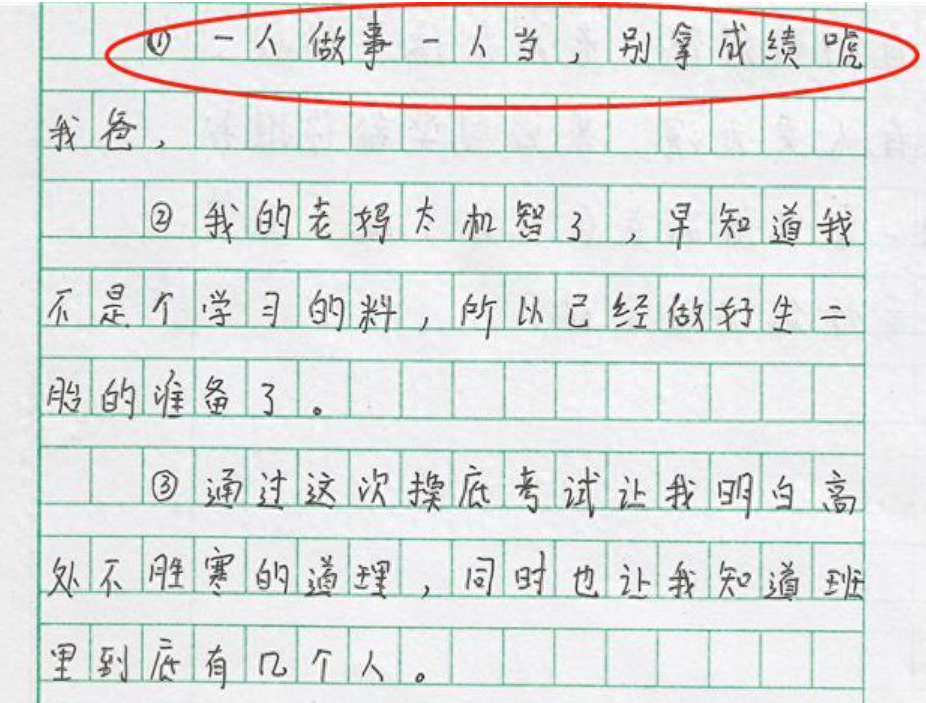 ① 一人做事一人当，别拿成绩唬
我爸，
② 我的老妈太机智了，早知道我
不是个学习的料，所以已经做好生二
胎的准备了。
③ 通过这次操底考试让我明白高
处不胜寒的道理，同时也让我知道班
里到底有几个人。